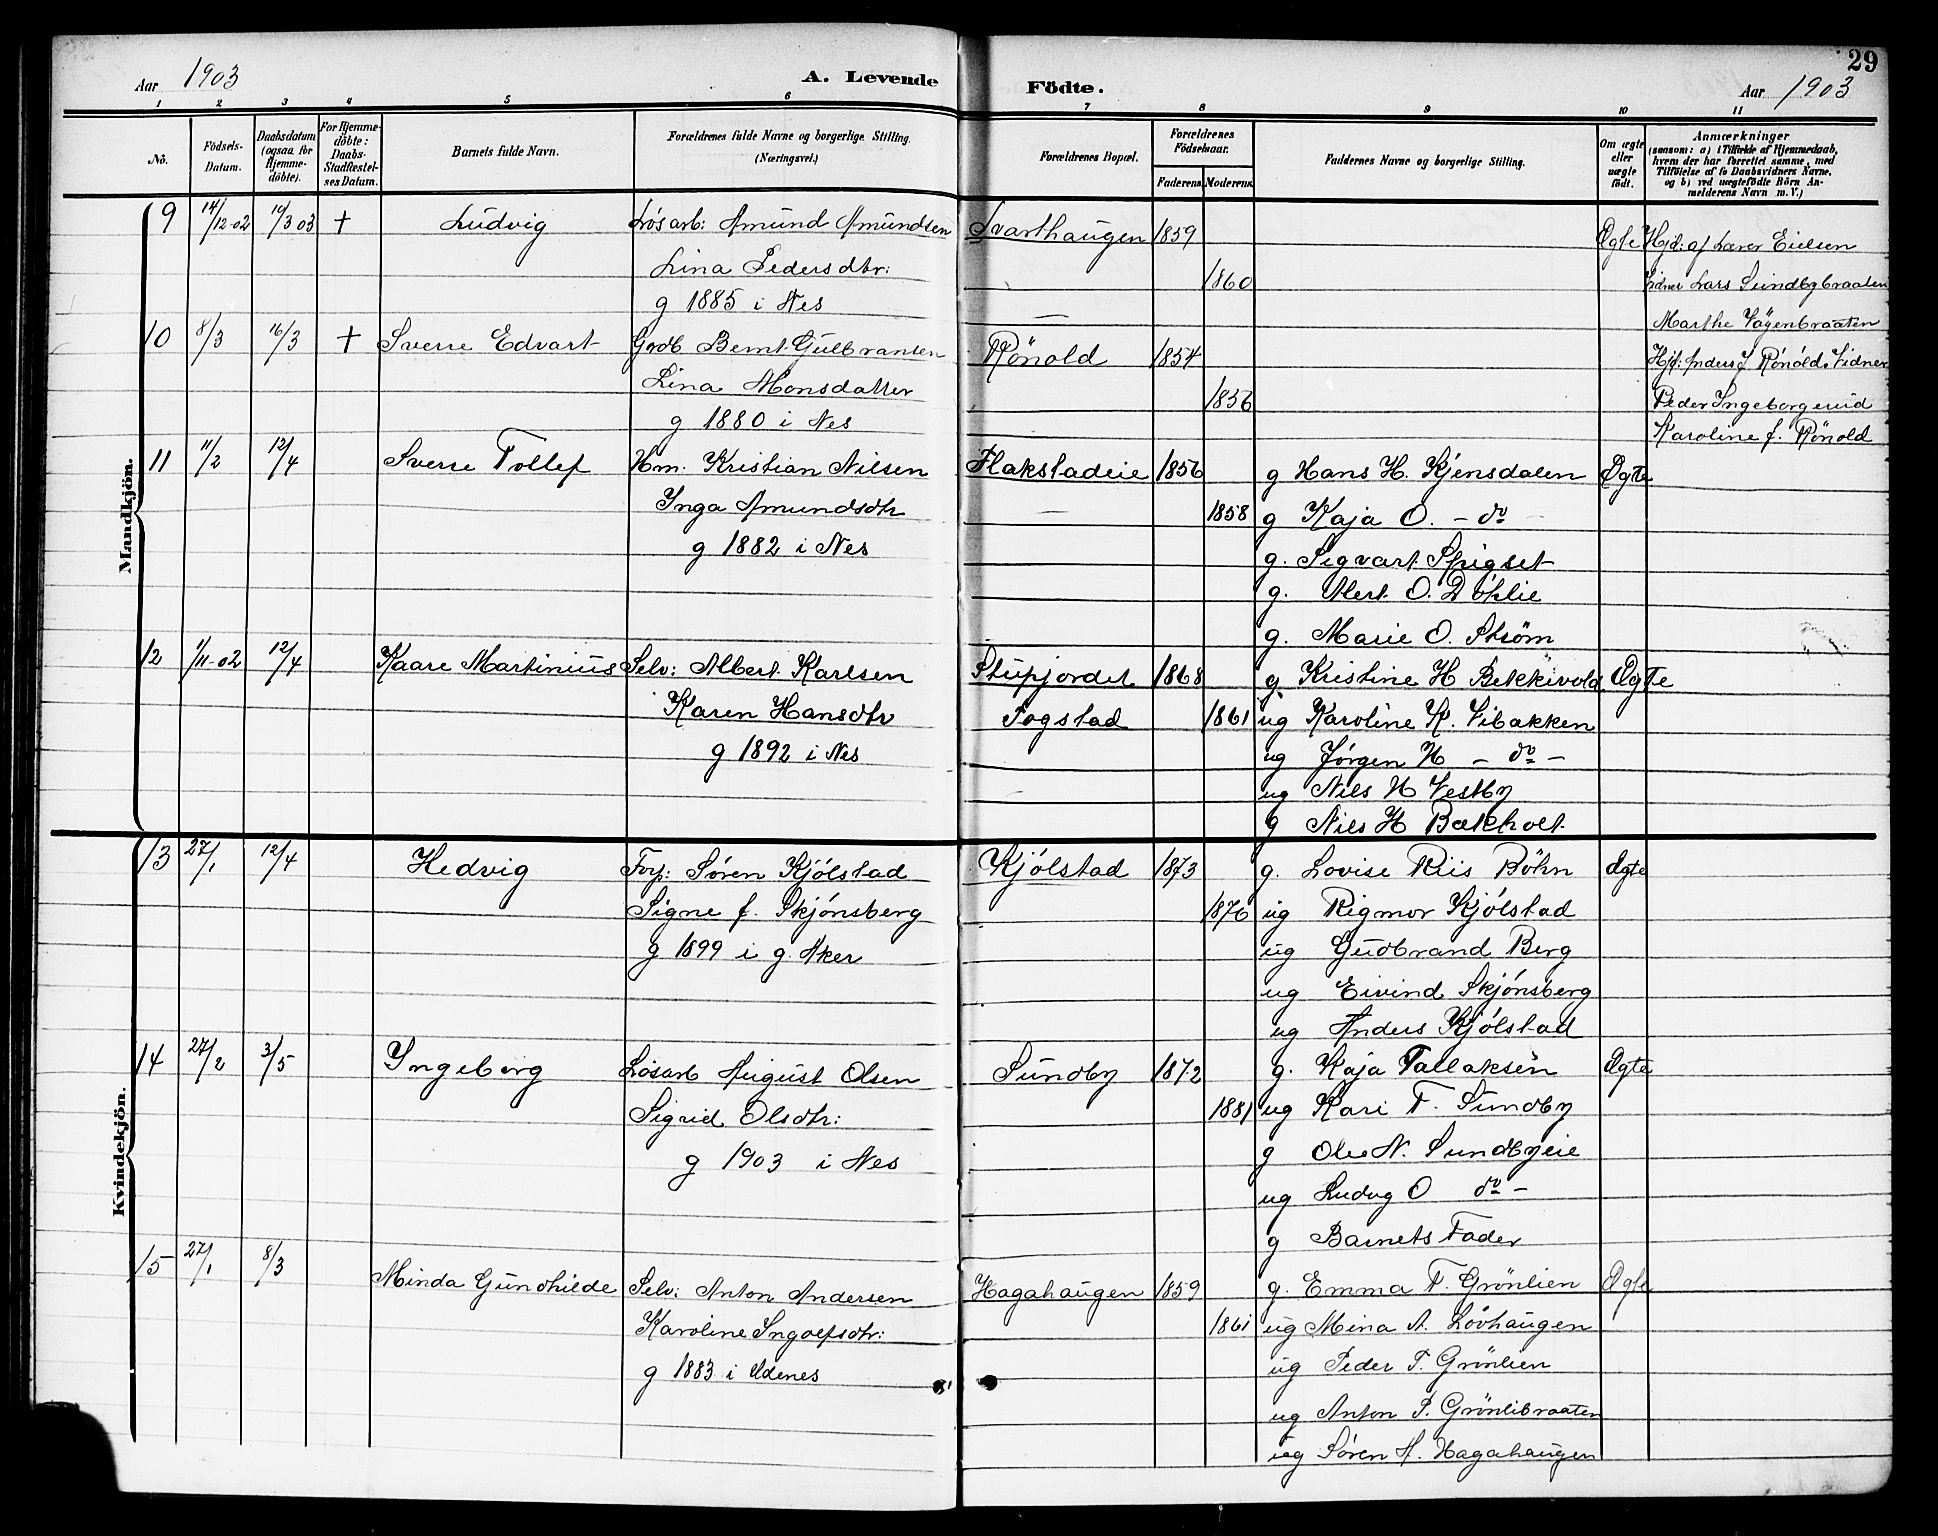 29
Aar 1903
A. Levende Födte.
Aar 1903
1 2 3 4 5 6 7 8 9 10 11
Nö.
Födsels-Datum.
Daabsdatum (ogsaa for Hjemme-döbte).
For Hjemme-döbte: Daabs-Stadfæstel-ses Datum.
Barnets fulde Navn.
Forældrenes fulde Navne og borgerlige Stilling. (Næringsvei.)
Forældrenes Bopæl.
Forældrenes Födselsaar.
Faderens. Moderens.
Faddernes Navne og borgerlige Stilling.
Om ægte eller uægte födt.
Anmærkninger
(saasom: a) i Tilfælde af Hjemmedaab, hvem der har forrettet samme, med Tilföielse af to Daabsvidners Navne, og b) ved uægtefödte Börn An-melderens Navn m. V.)
Mandkjön.
9 14/12-02 10/3 03 + Ludvig Lösarb: Amund Amundsen Svarthaugen 1859 Ægte Hjd: af Lærer Eielsen
Lina Pedersdtr: 1860 Vidner Lars Sundbybraaten
g 1885 i Nes — Marthe Vögenbraaten
10 8/3 16/3 + Sverre Edvart Gdb Bernt Gulbransen Rönold 1854 Hjd: Anders J Rönold. Vidner
Lina Monsdatter 1856 Peder Ingeborgerud
g 1880 i Nes Karoline f. Rönold
11 11/2 12/4 Sverre Tollef Hm. Kristian Nilsen Flakstadeie 1856 g Hans H. Kjensdalen Ægte
Inga Amundsdtr — 1858 g Kaja O. - do -
g 1882 i Nes g. Sigvart Spigset
g. O. Döhlie
g. Marie O. Ström
12 1/11-02 12/4 Kaare Martinius Selv: Albert Karlsen Stupjordet 1868 g Kristine H Bekkivold Ægte
Karen Hansdtr Fogstad 1861 ug Karoline K. Vibakken
g 1892 i Nes ug Jörgen H - do -
ug Nils H Vestby
g Nils H Bækholt
Kvindekjön.
13 27/1 12/4 Hedvig Forp: Sören Kjölstad Kjölstad 1873 g. Lovise Riis Böhn Ægte
Signe f. Skjönsberg 1876 ug Rigmor Kjölstad
g 1899 i g. Aker ug Gudbrand Berg
ug Eivind Skjönsberg
ug Anders Kjölstad
14 27/2 3/5 Ingeborg Lösarb August Olsen Sundby 1872 g. Kaja Tallaksen Ægte
Sigrid Olsdtr: 1881 ug Kari T. Sundby
g 1903 i Nes g Ole N. Sundbyeie
ug Ludvg O do -
g Barnets Fader
15 27/1 8/3 Minda Gundhilde Selv: Anton Andersen Hagahaugen 1859 g. Emma T. Grönlien Ægte
Karoline Ingolfsdtr: 1861 ug Mina A. Lövhaugen
g 1883 i Udenes ug Peder P. Grönlien
ug Anton P. Grönlibraaten
ug Sören A. Hagahaugen